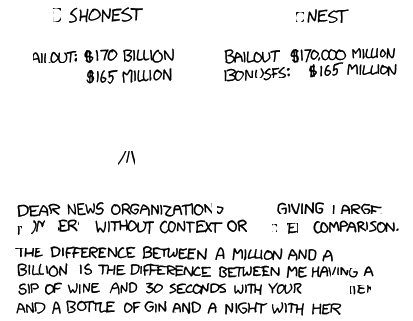 SHONEST NEST
AILOUT: $170 BILLION BAILOUT $170,000 MILLION
$165 MILLION $165 MILLION
DEAR NEWS ORGANIZATION GIVING
WITHOUT CONTEXT OR COMPARISON.
THE DIFFERENCE BETWEEN A MILLION AND A
BILLION IS THE DIFFERENCE BETWEEN ME HAVING A
SIP OF WINE AND 30 SECONDS WITH YOUR
AND A BOTTLE OF GIN AND A NIGHT WITH HER